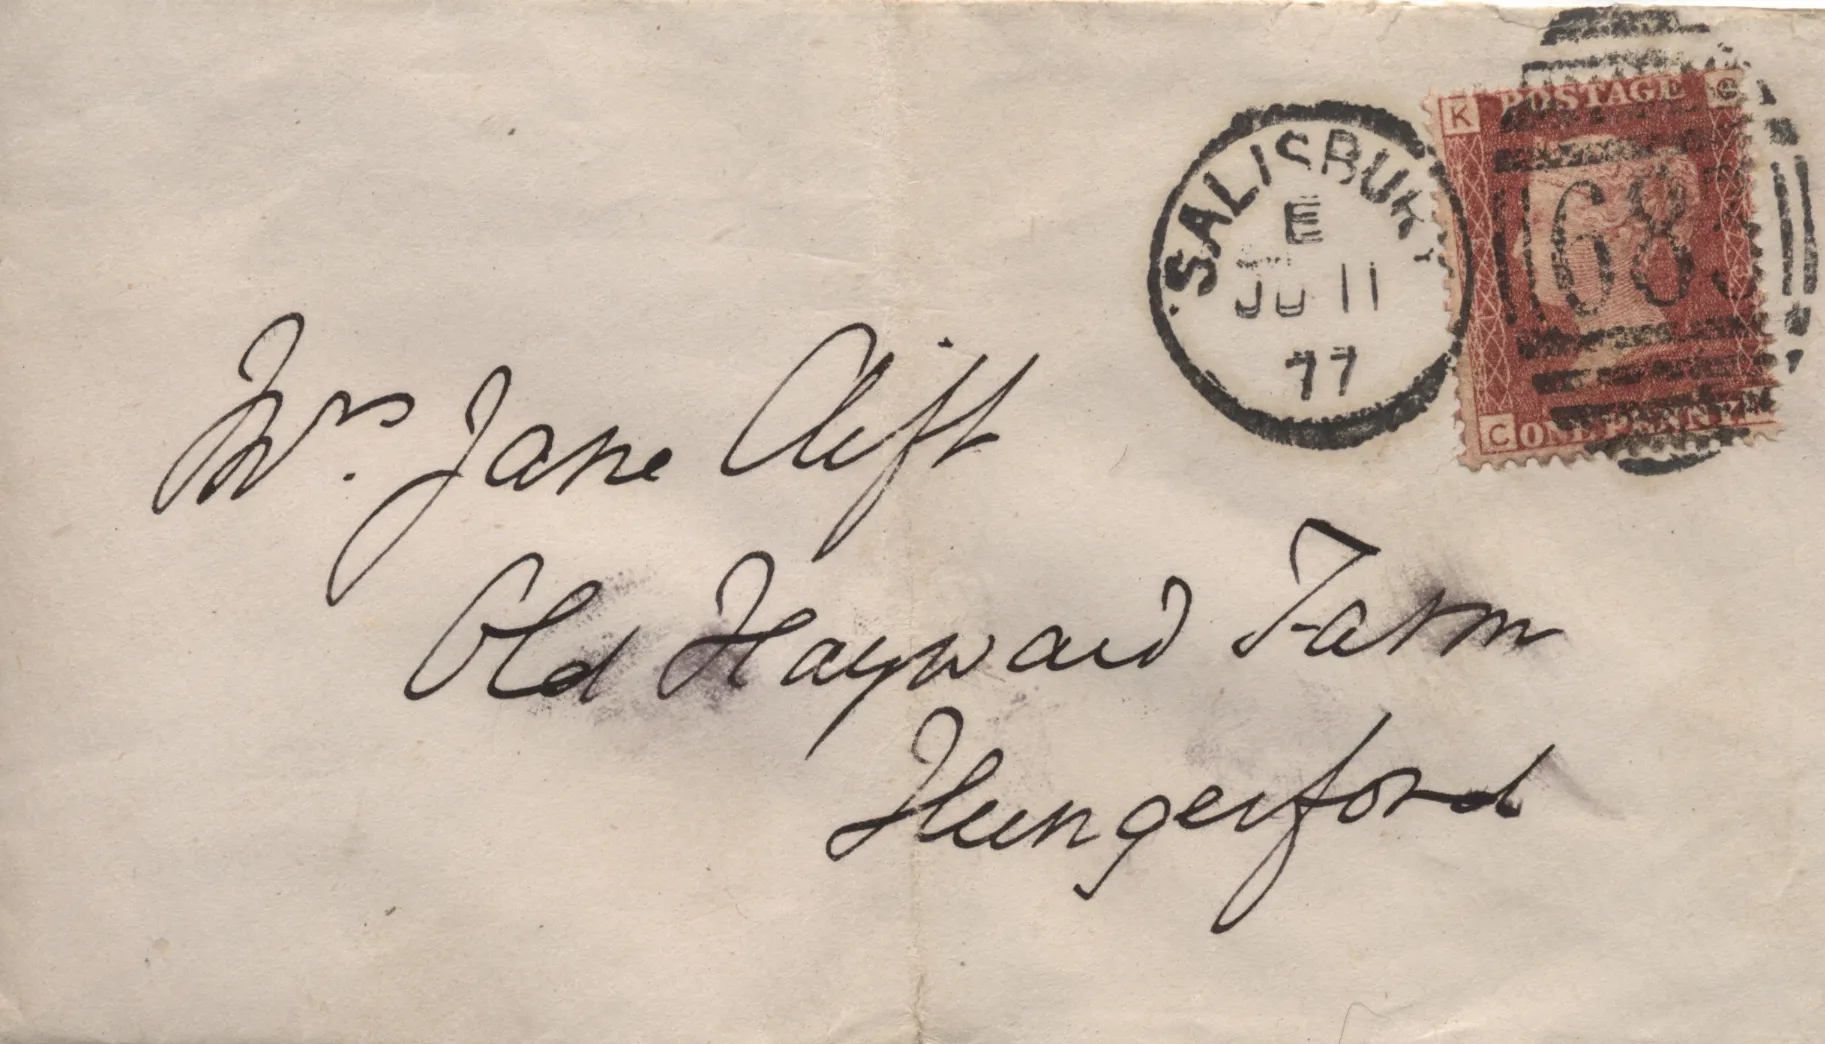 SALISBURY
E
JU 11
77
K POSTAGE C
683
C ONE PENNY K
Mrs. Jane Clift
Old Hayward Farm
Hungerford